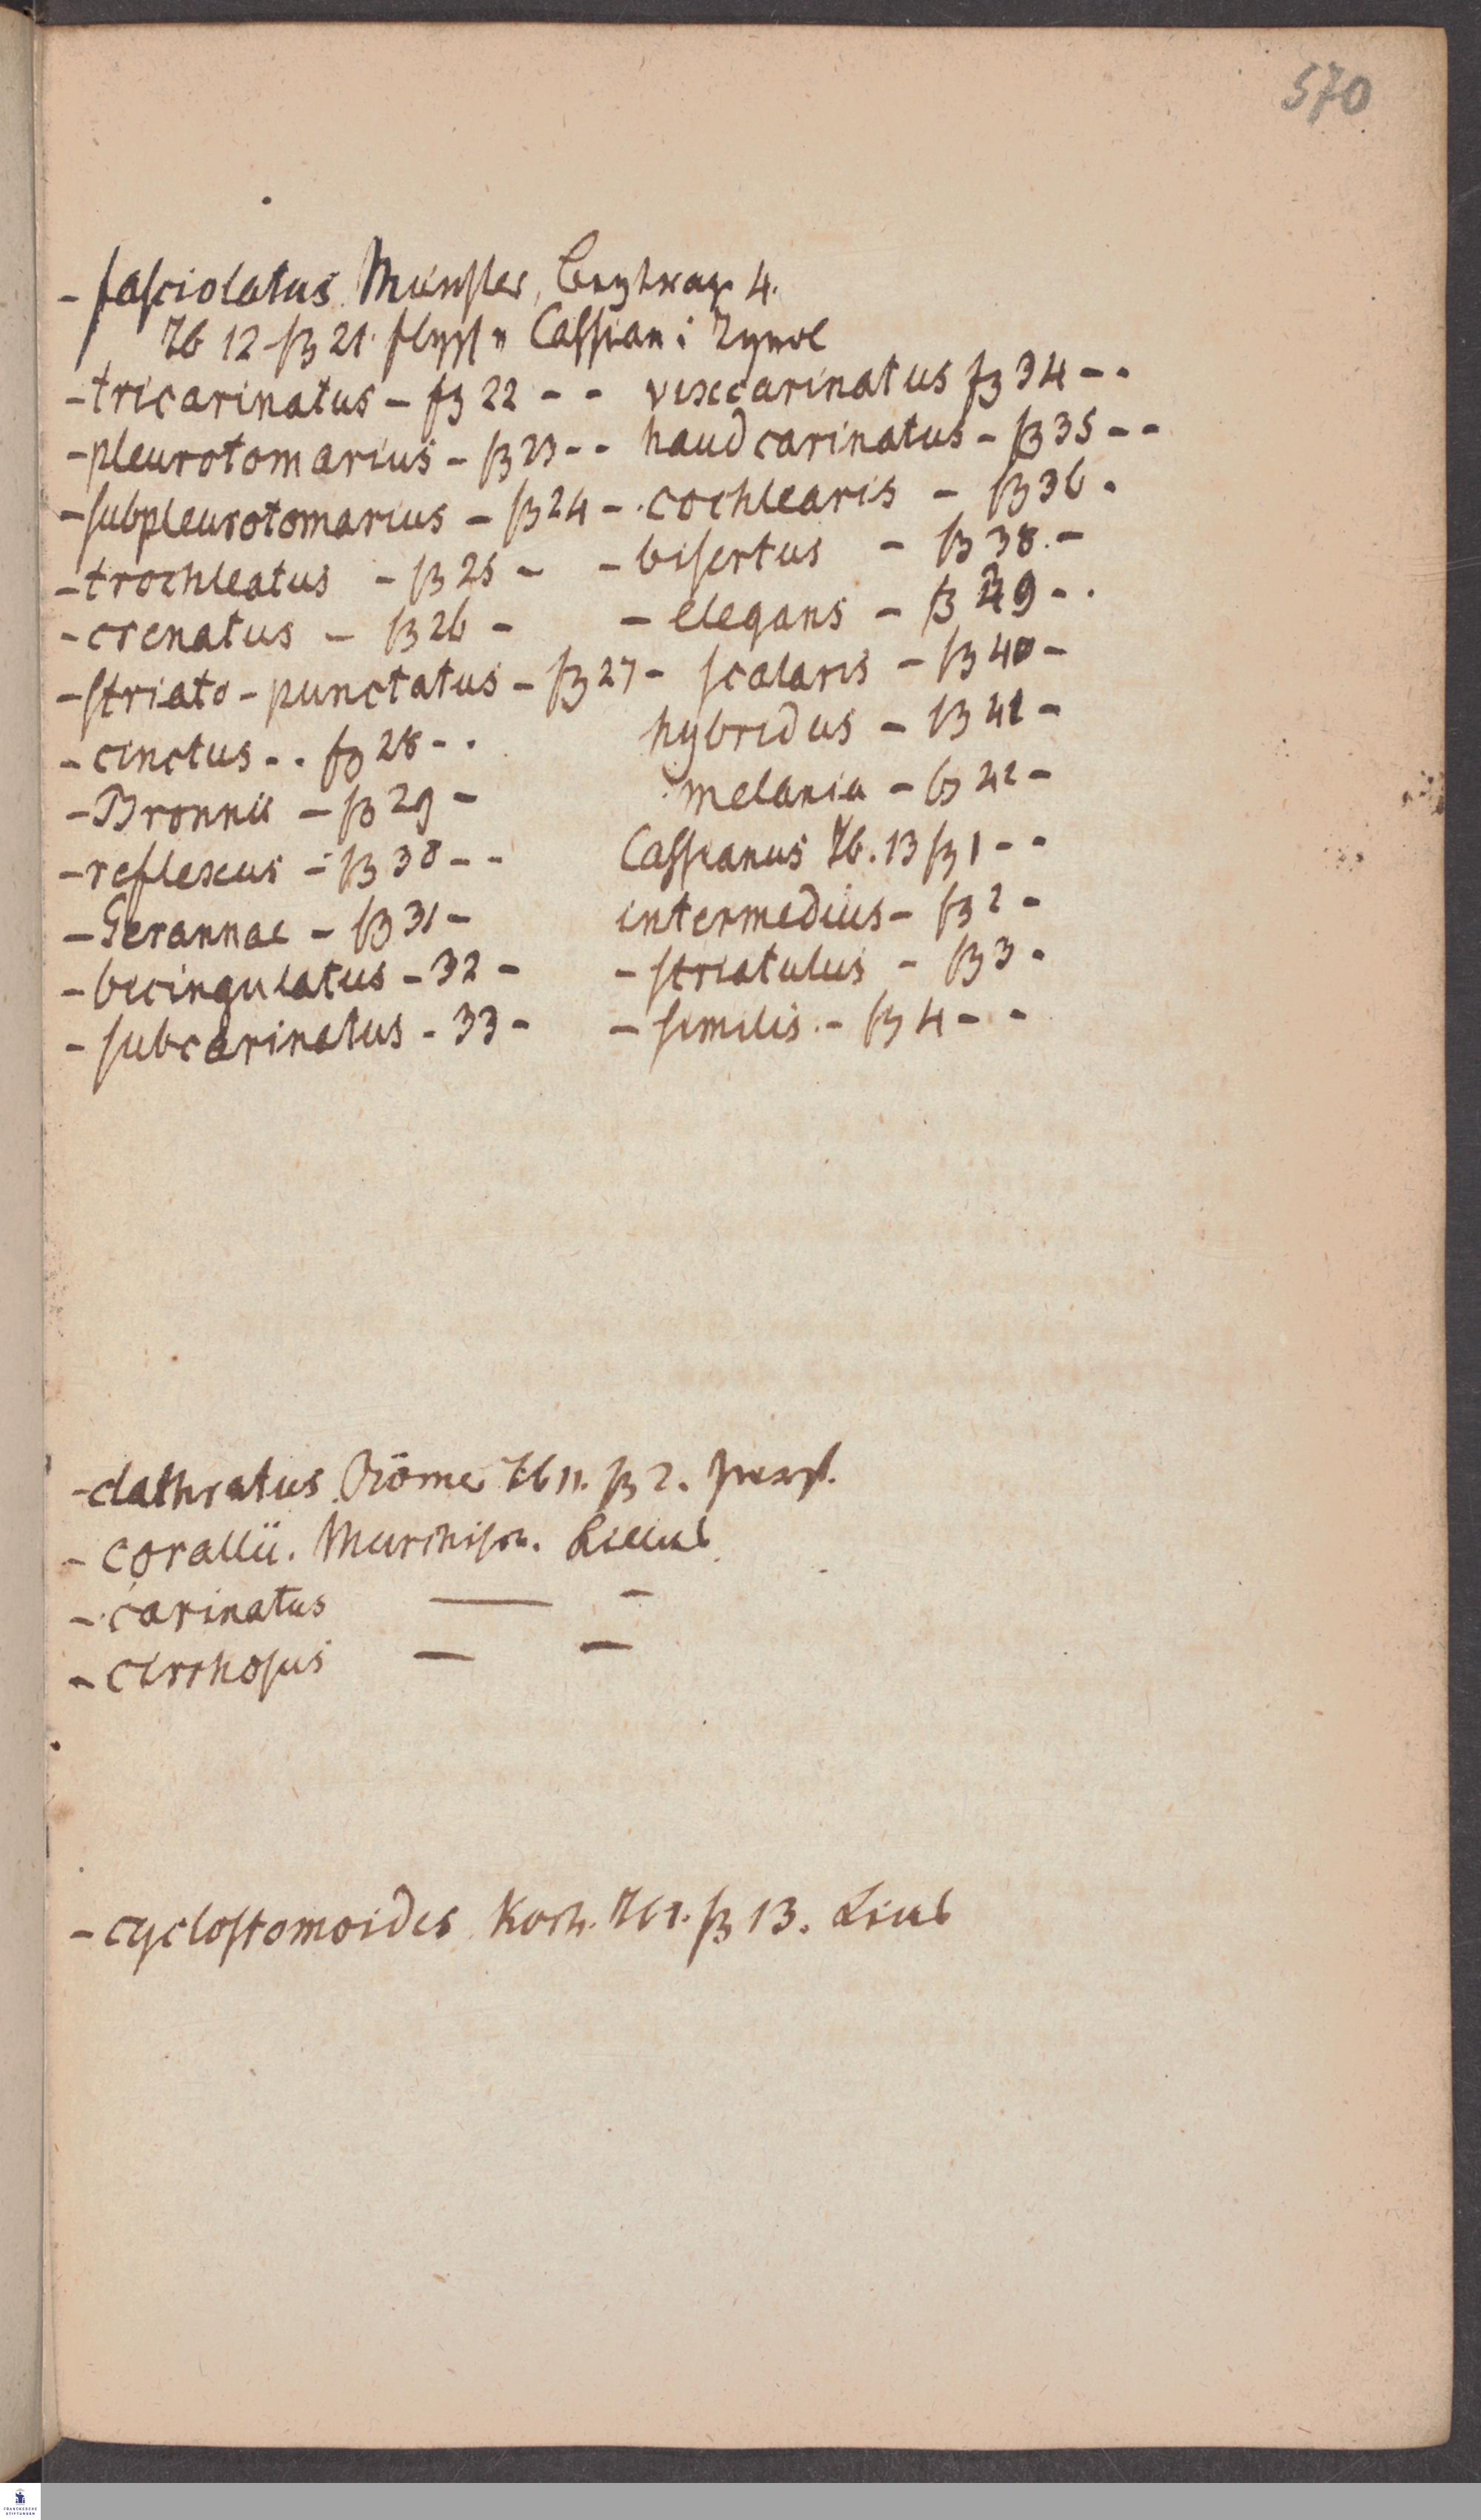 570
- fasciolatus Münster, Beytrag 4.
Tb 12 fg 21. flyssn Cassian i Tyrol
- tricarinatus - fg 22 - - vixcarinatus fg 34 - -
- pleurotomarius - fg 23 - - haud carinatus - fg 35 - -
- subpleurotomarius - fg 24 - . cochlearis - fg 36 .
- trochleatus - fg 25 - - bisertus - fg 38. -
- crenatus - fg 26 - - elegans - fg 39 - .
- striato-punctatus - fg 27 - scalaris - fg 40 -
- cinctus . . fg 28 - . hybridus - fg 41 -
- Bronnii - fg 29 - melania - fg 42 -
- reflexus - fg 30 - - Cassianus Tb. 13 fg 1 - -
- Gerannae - fg 31 - intermedius - fg 2 -
- bicingulatus - 32 - - striatulus - fg 3 .
- subcarinatus - 33 - - similis. - fg 4 - -
- clathratus Römer Tb 11. fg 2.
- corallii. Murchison.
- carinatus — -
- cirrhosus — —
- cyclostomoides Koch. Tb 1. fg 13. Lias